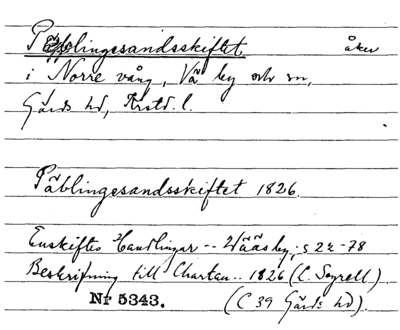 Päblingesandsskiftet åker
i Norre vång, Vä by och sn,
Gärds hd, Krstd. l.
Päblingesandsskiftet 1826.
Enskiftes Handlingar -- Wääs by, s 22-78
Beskrifning till Chartan .. 1826 (C. Seyrell).
Nr 5343. (C 39 Gärds hd).